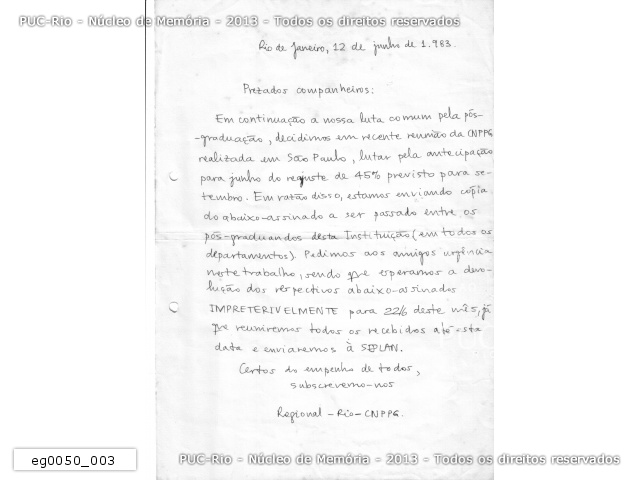 PUC-Rio - Núcleo de Memória - 2013 - Todos os direitos reservados
Rio de Janeiro, 12 de junho de 1.983.
Prezados companheiros:
Em continuação a nossa luta comum pela pós-
-graduação, decidimos em recente reunião da CNPPG
realizada em São Paulo, lutar pela antecipação
para junho do reajuste de 45% previsto para se-
tembro. Em razão disso, estamos enviando cópia
do abaixo-assinado a ser passado entre os
pós-graduandos desta Instituição (em todos os
departamentos). Pedimos aos amigos urgência
neste trabalho, sendo que esperamos a devo-
lução dos respectivos abaixo-assinados
IMPRETERIVELMENTE para 22/6 deste mês, já
que reuniremos todos os recebidos até esta
data e enviaremos à SEPLAN.
Certos do empenho de todos,
subscrevemo-nos
Regional - Rio - CNPPG.
eg0050_003
PUC-Rio - Núcleo de Memória - 2013 - Todos os direitos reservados